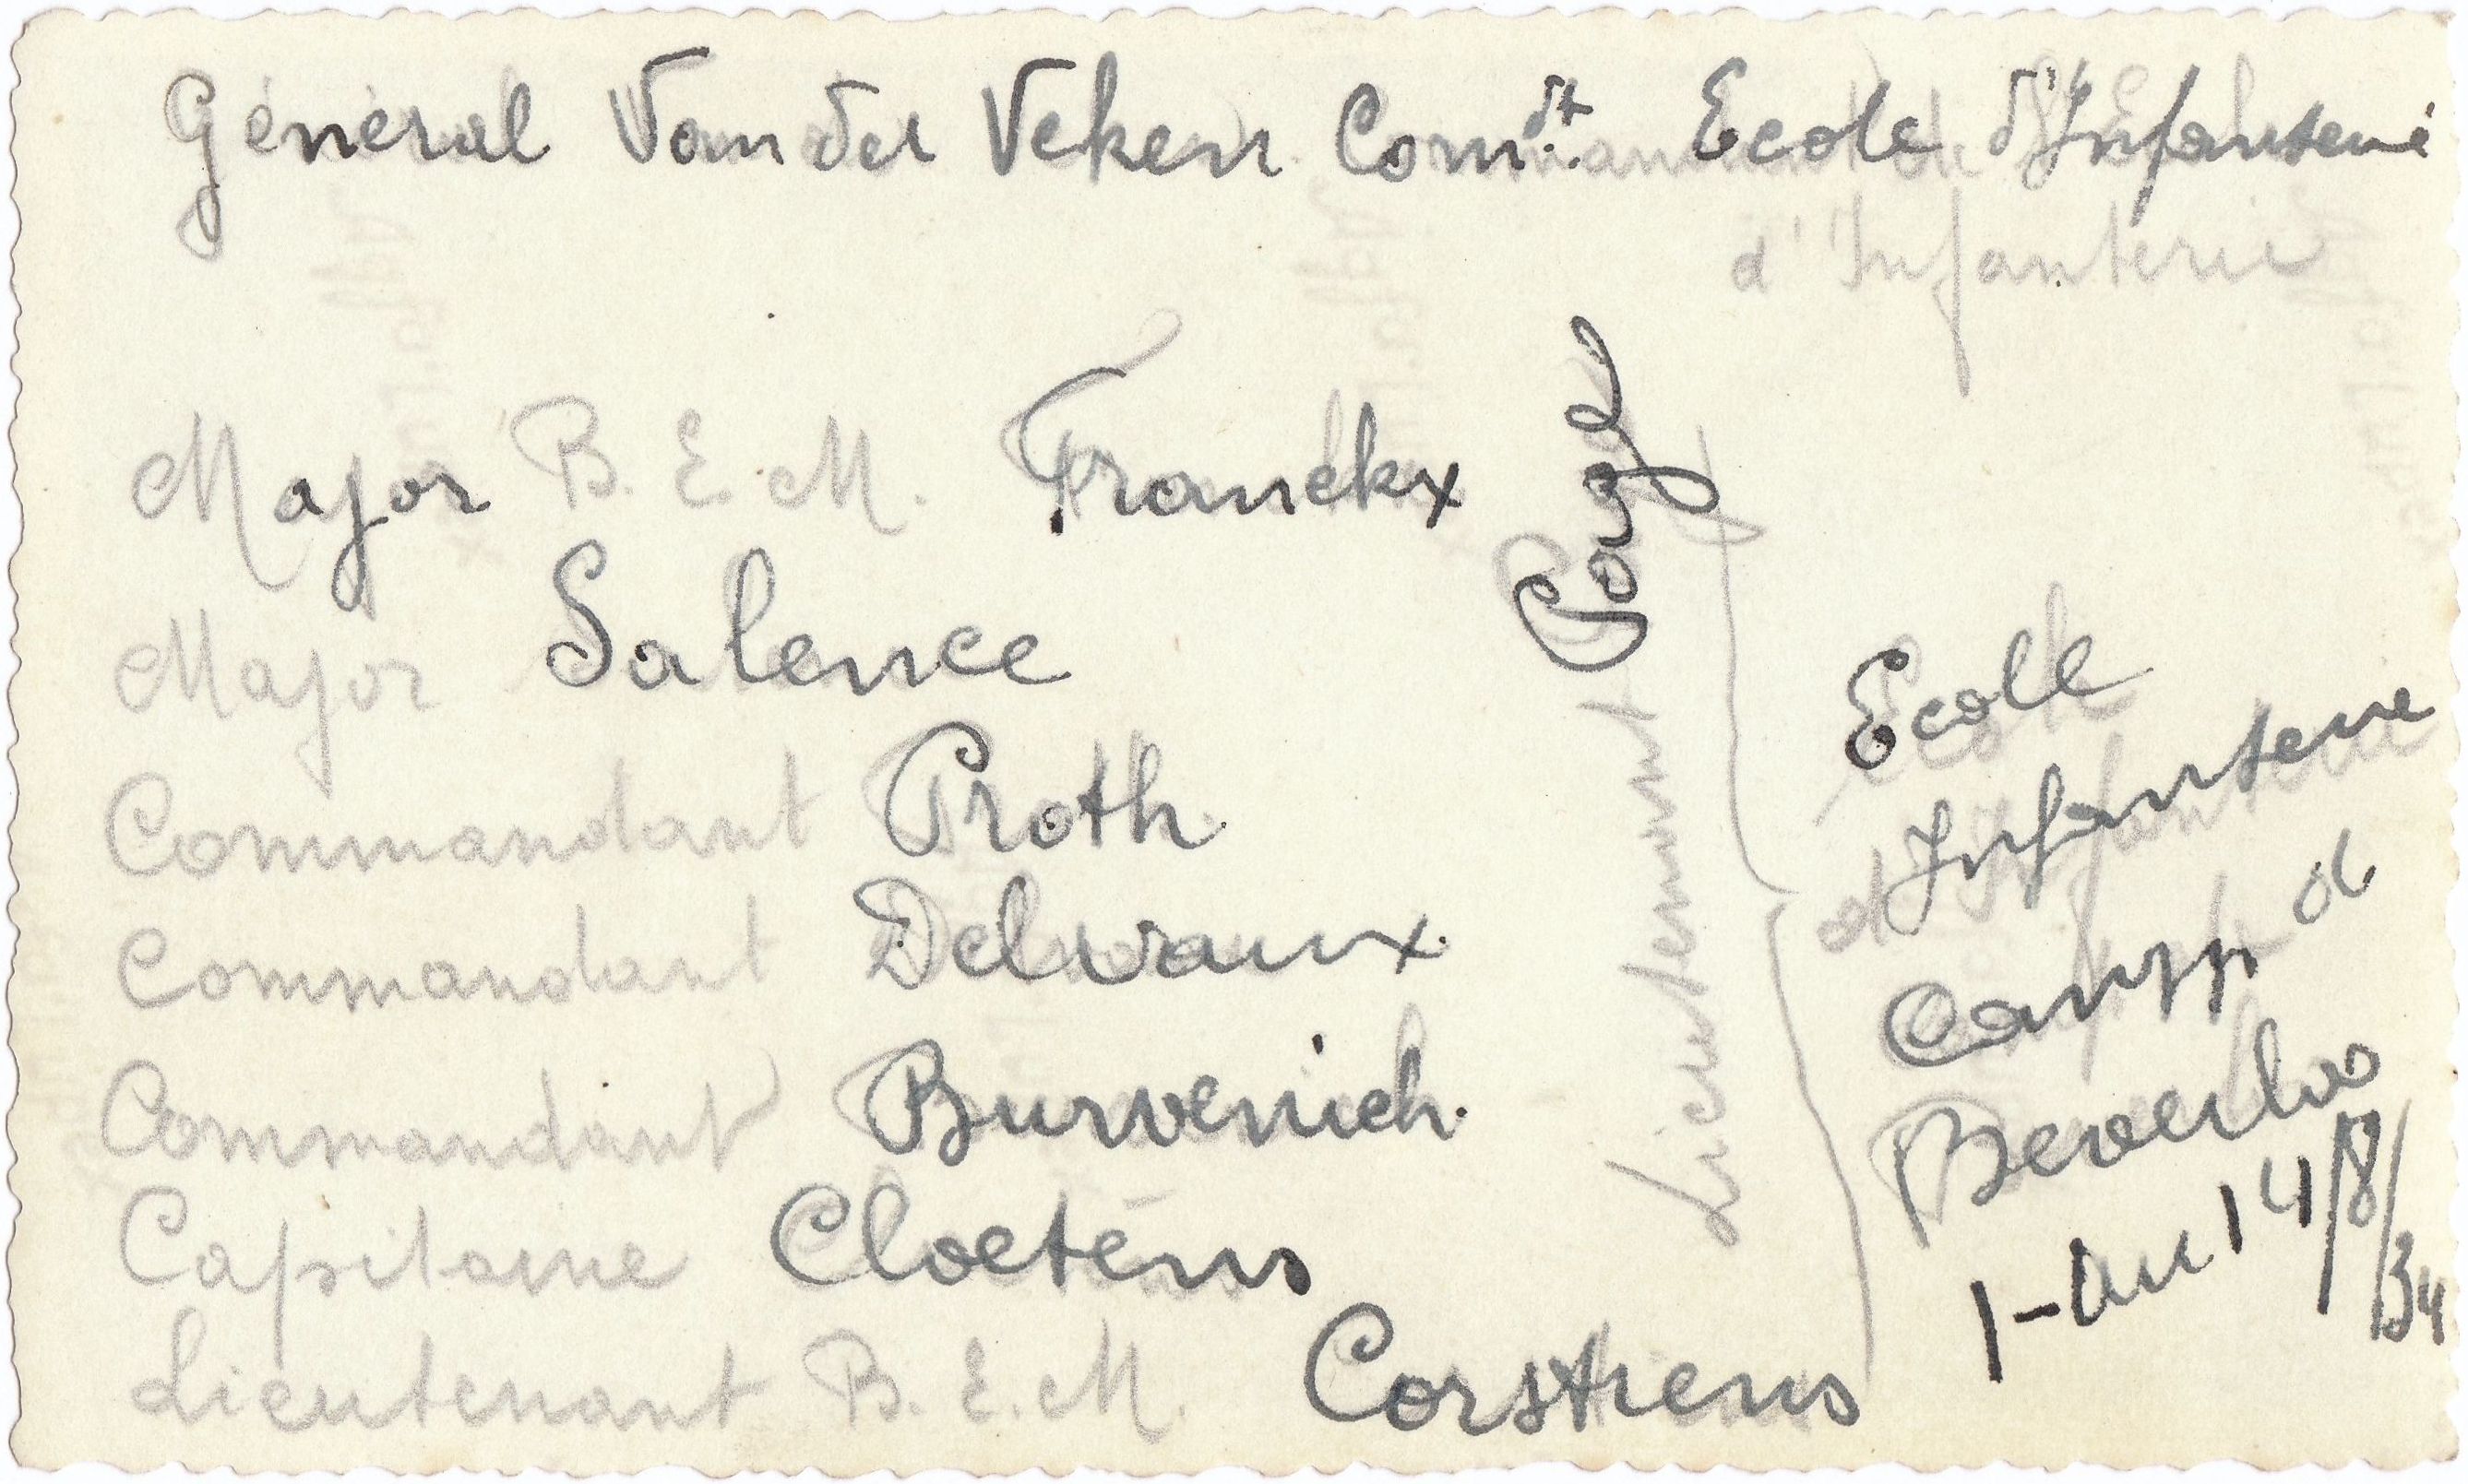 Général Van der Veken Comdt. Ecole d'Infanterie
d'Infanterie
Major B.E.M. Franckx
Major Salence
Commandant Proth
Commandant Delvaux
Commandant Burvenich.
Capitaine Cloetens
Lieutenant B.E.M. Corstiens
Lieutenant
Ecole
d'Infanterie
Camp de
Beverloo
1-au 14/8/34